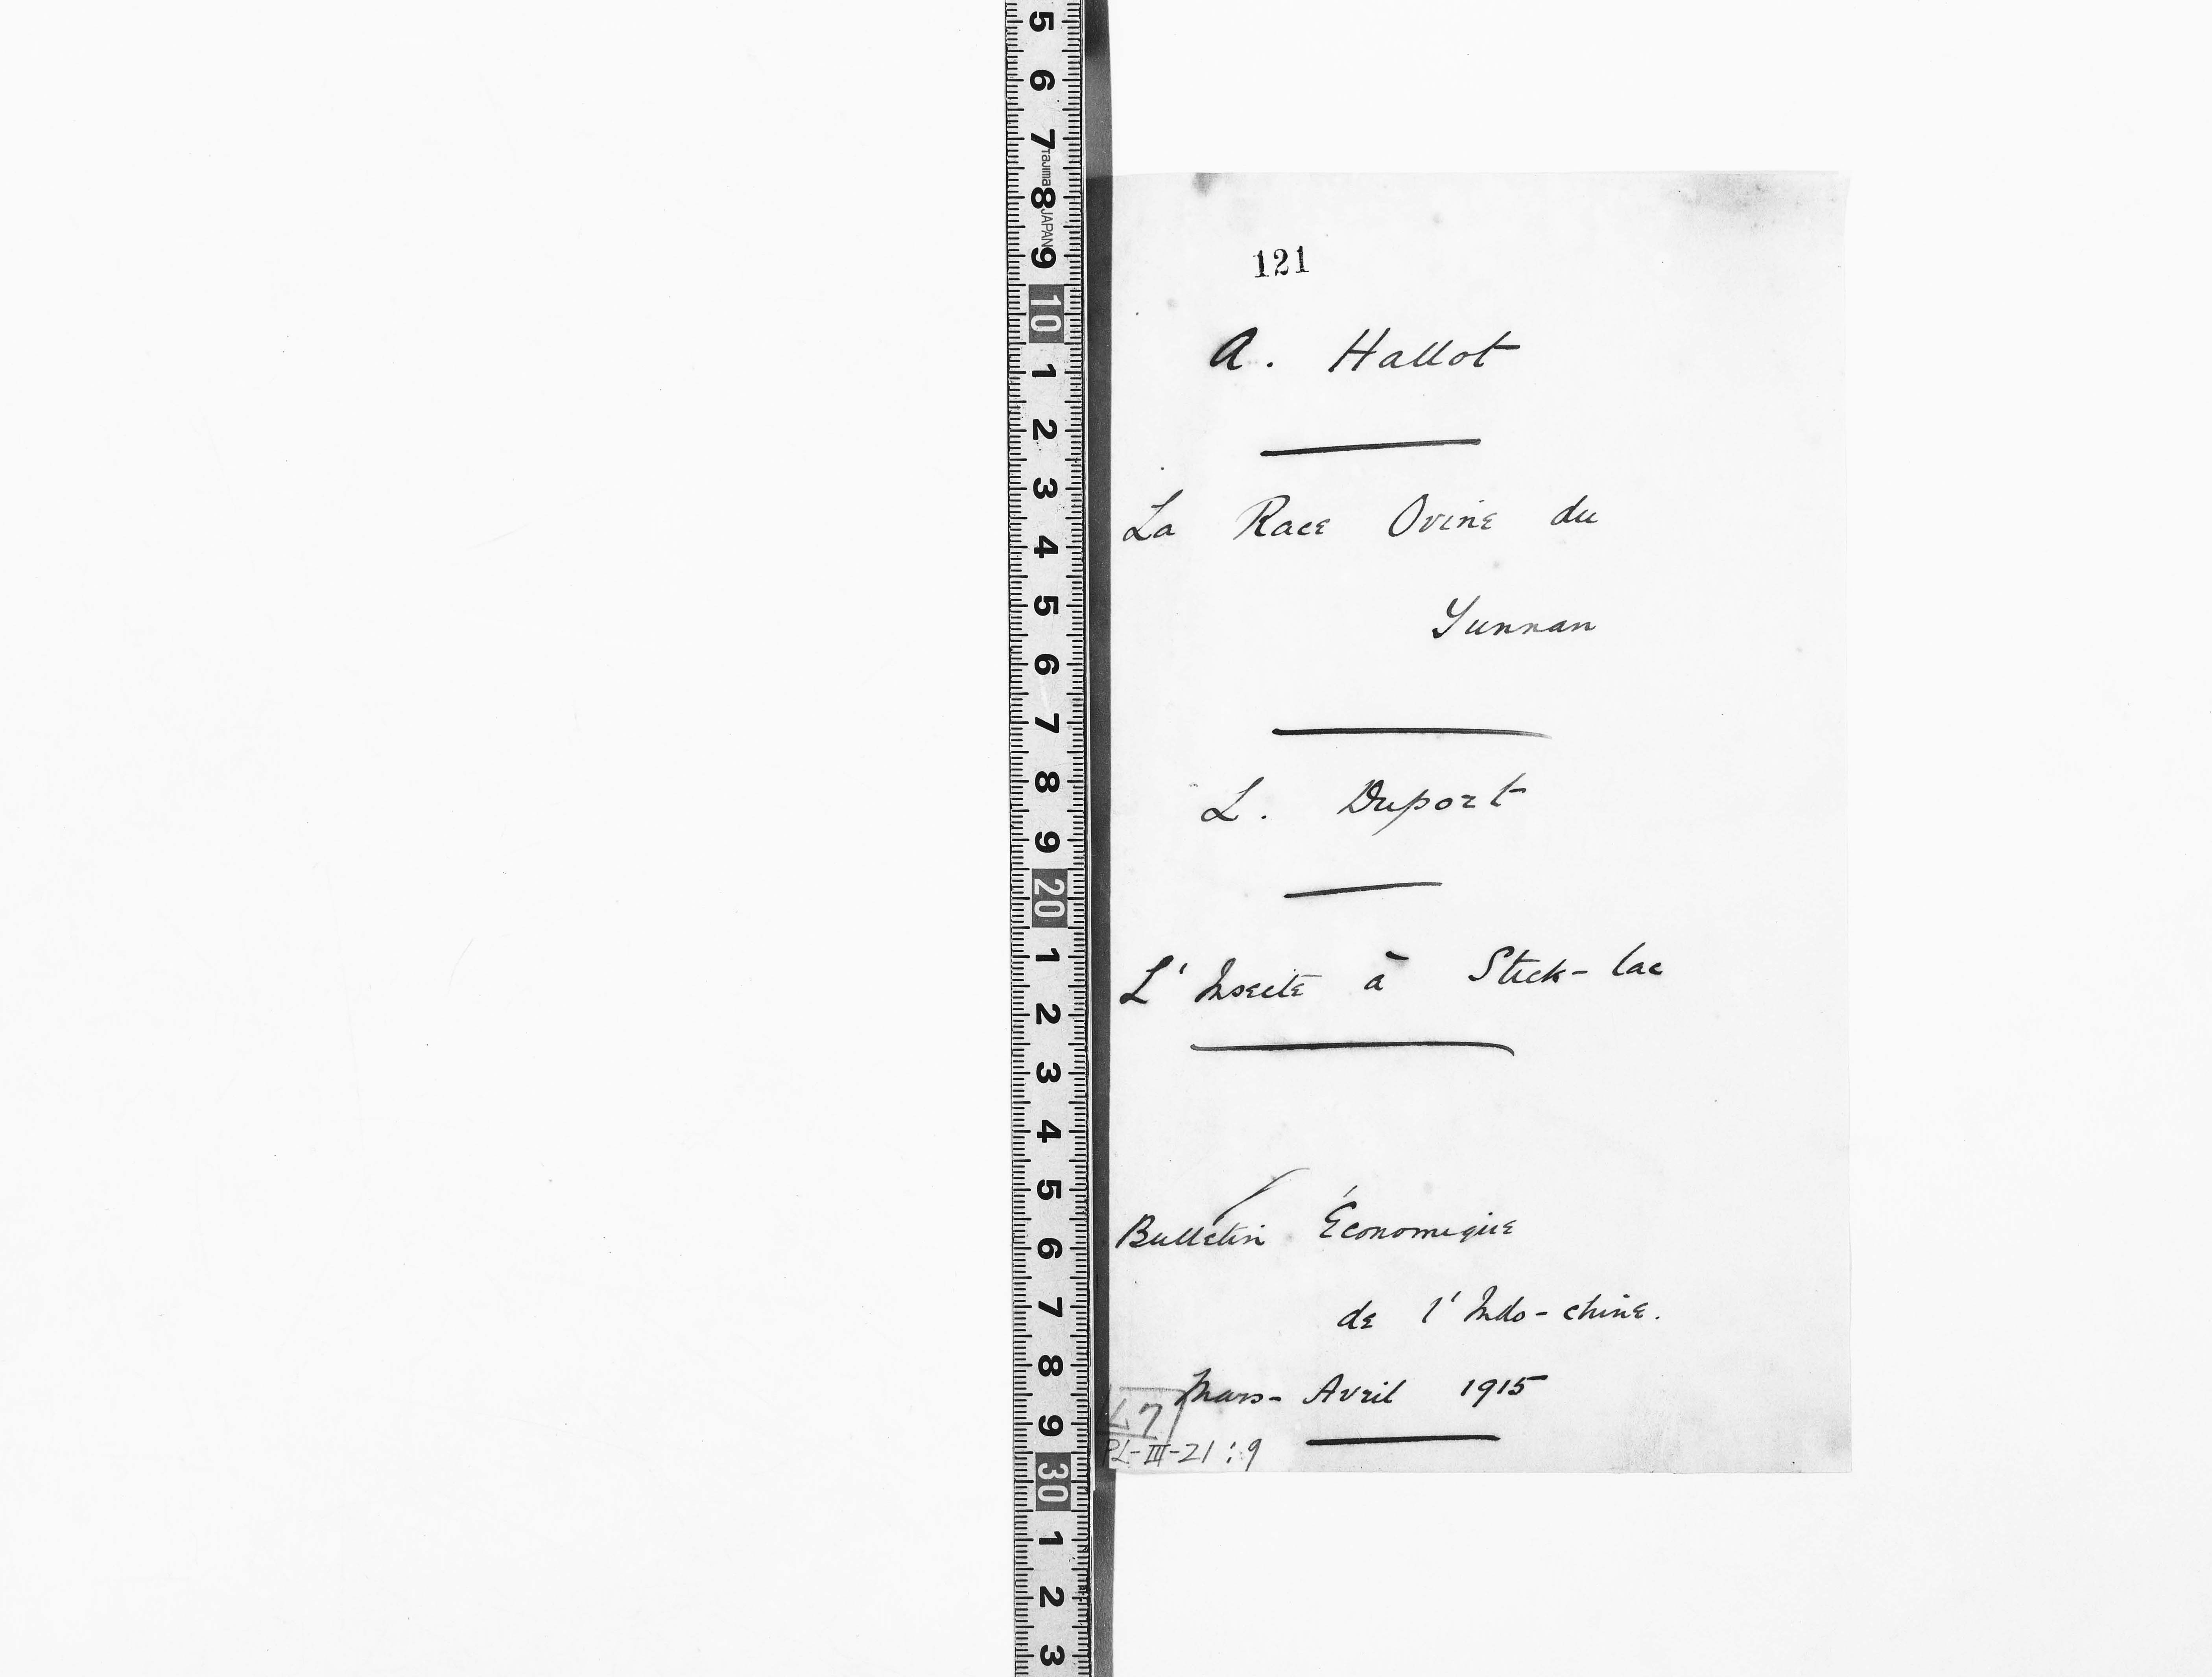 5
6
7
Tajima
8
JAPAN
9
10
1
2
3
4
5
6
7
8
9
20
1
2
3
4
5
6
7
8
9
30
1
2
3
121
A. Hallot
La Race Ovine du
Yunnan
L. Duport
L'Insecte à Stick-lac
Bulletin Économique
de l'Indo-chine.
Mars-Avril 1915
L7
PL-III-21:9